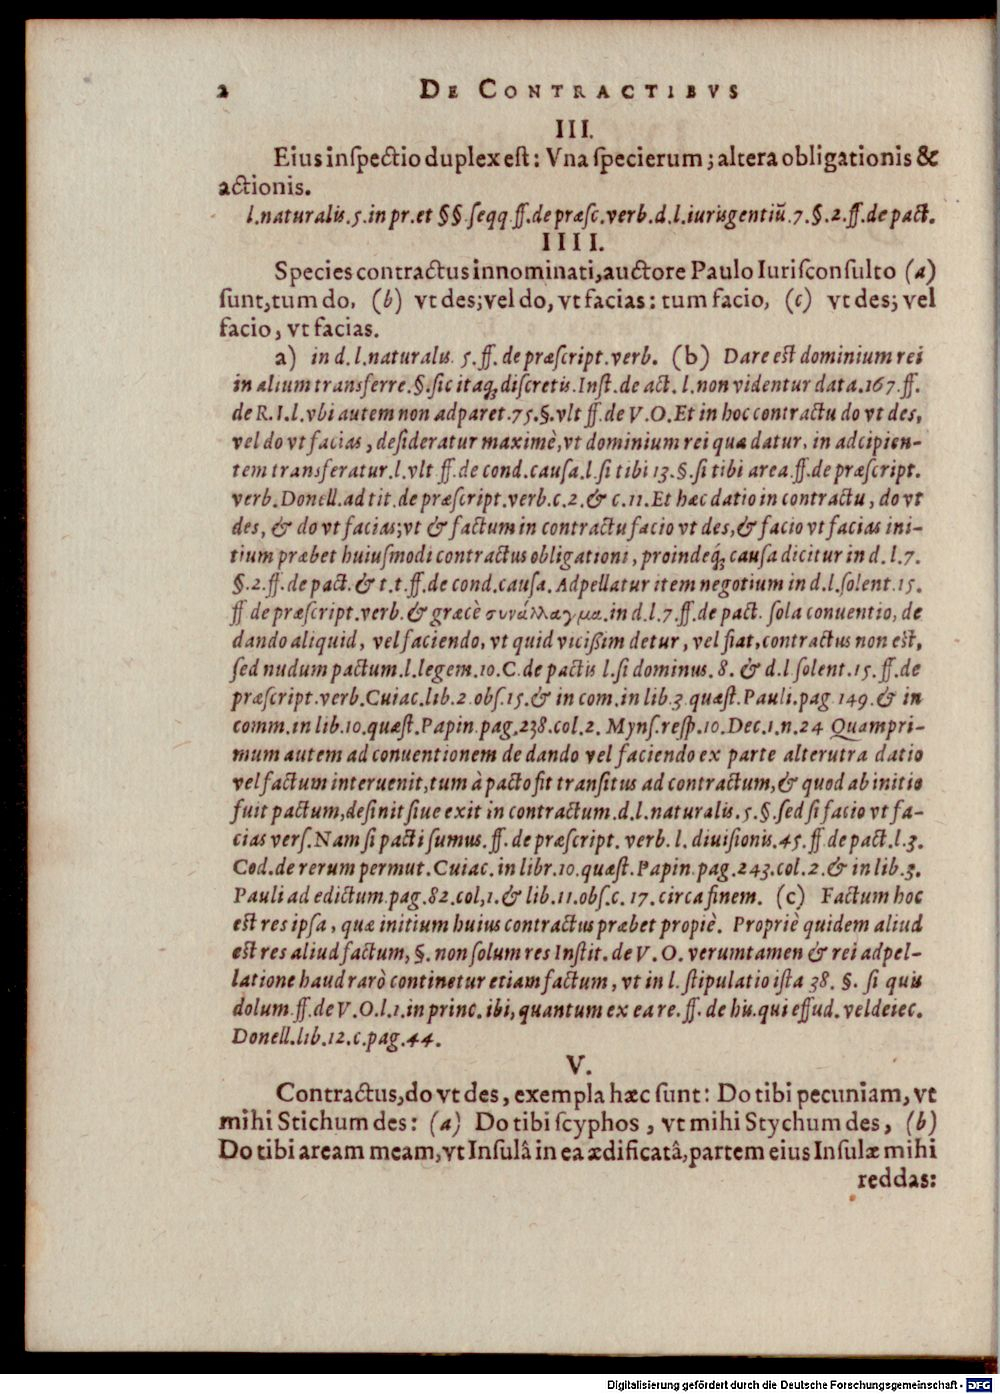 2 DE CONTRACTIBVS
III.
Eius inſpectio duplex eſt: Vna ſpecierum; altera obligationis &
actionis.
l.naturalis.5.in pr.et §§.ſeqq.ff.de præſc.verb.d.l.iurisgentiū.7.§.2.ff.de pact.
IIII.
Species contractus innominati, auctore Paulo Iuriſconſulto (a)
ſunt, tum do, (b) vt des; vel do, vt facias: tum facio, (c) vt des; vel
facio, vt facias.
a) in d.l.naturalis. 5.ff. de præſcript.verb. (b) Dare eſt dominium rei
in alium transferre.§.ſic itaq; diſcretis.Inſt.de act. l.non videntur data.167.ff.
de R.I.l.vbi autem non adparet.75.§.vlt ff.de V.O.Et in hoc contractu do vt des,
vel do vt facias, deſideratur maximè, vt dominium rei qua datur, in adcipien-
tem transferatur.l.vlt ff.de cond.cauſa.l.ſi tibi 13.§.ſi tibi area.ff.de præſcript.
verb.Donell.ad tit.de præſcript.verb.c.2.& c.11.Et hæc datio in contractu, do vt
des, & do vt facias; vt & factum in contractu facio vt des, & facio vt facias ini-
tium præbet huiuſmodi contractus obligationi, proindeq́; cauſa dicitur in d.l.7.
§.2.ff.de pact.& t.t.ff.de cond.cauſa. Adpellatur item negotium in d.l.ſolent.15.
ff de præſcript.verb.& græcè συνάλλαγμα.in d.l.7.ff.de pact. ſola conuentio, de
dando aliquid, vel faciendo, vt quid viciſſim detur, vel fiat, contractus non eſt,
ſed nudum pactum.l.legem.10.C.de pactis l.ſi dominus.8. & d.l ſolent.15.ff.de
præſcript.verb.Cuiac.lib.2 obſ.15.& in com.in lib.3 quæſt.Pauli.pag 149.& in
comm.in lib.10.quæſt.Papin.pag.238.col.2. Mynſ.reſp.10.Dec.1.n.24 Quampri-
mum autem ad conuentionem de dando vel faciendo ex parte alterutra datio
vel factum interuenit, tum à pacto fit tranſitus ad contractum, & quod ab initio
fuit pactum, deſinit ſiue exit in contractum.d.l.naturalis.5.§.ſed ſi facio vt fa-
cias verſ.Nam ſi pacti ſumus.ff.de præſcript. verb. l. diuiſionis.45.ff de pact.l.3.
Cod.de rerum permut.Cuiac.in libr.10.quæſt.Papin.pag.243.col.2.& in lib.3.
Pauli ad edictum.pag.82.col,1.& lib.11.obſ.c.17.circa finem. (c) Factum hoc
eſt res ipſa, quæ initium huius contractus præbet propiè. Propriè quidem aliud
eſt res aliud factum, §. non ſolum res Inſtit. de V.O. verumtamen & rei adpel-
latione haud rarò continetur etiam factum, vt in l. ſtipulatio iſta 38. §. ſi quis
dolum.ff.de V.O.l.1.in princ.ibi, quantum ex ea re.ff. de his.qui effud. vel deiec.
Donell.lib.12.c.pag.44.
V.
Contractus, do vt des, exempla hæc ſunt: Do tibi pecuniam, vt
mihi Stichum des: (a) Do tibi ſcyphos, vt mihi Stychum des, (b)
Do tibi aream meam, vt Inſulâ in ea ædificatâ, partem eius Inſulæ mihi
reddas:
Digitalisierung gefördert durch die Deutsche Forschungsgemeinschaft - DFG